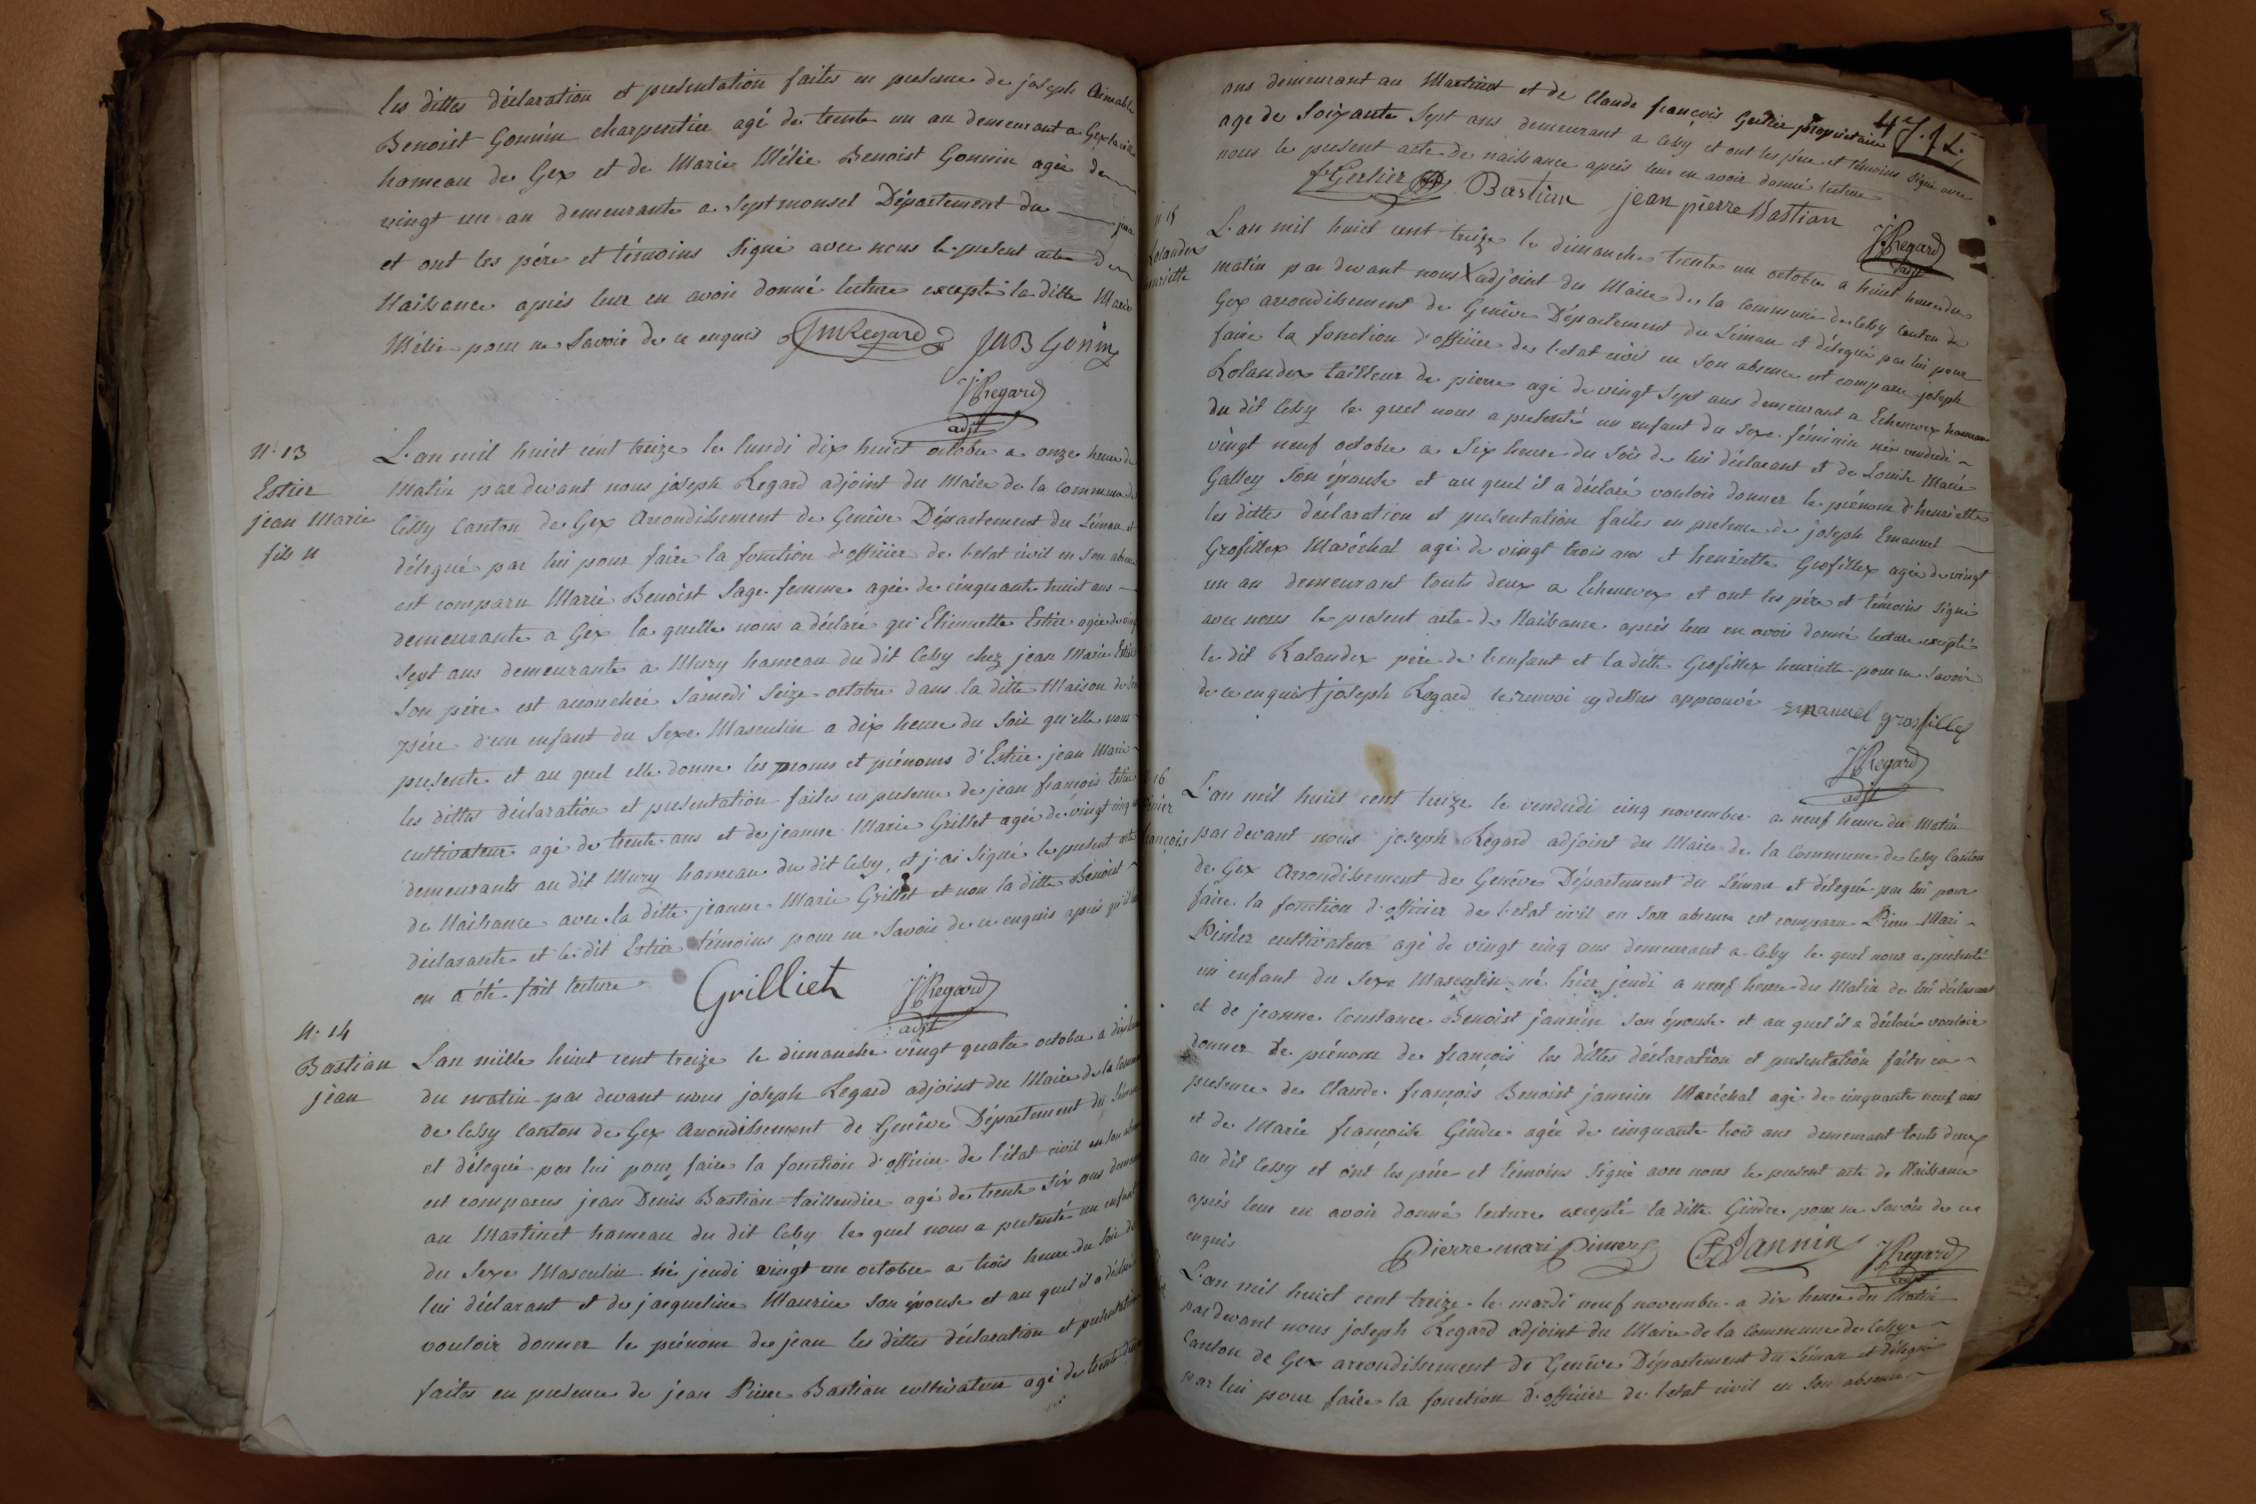 les dittes déclaration et presentation faites en presence de joseph Aimable
Benoist Gonnin charpentier agé de trente un an demeurant a Gex la ville
hameau de Gex et de Marie Mélie Benoist Gonnin agée de
vingt un an demeurante a Septmonsel Département du jura
et ont les pére et témoins Signé avec nous le present acte de
Naissance aprés leur en avoir donné lecture excepté la ditte Marie
Mélie pour ne Savoir de ce enquis JMRegard JAB Gonin
J Regard
adjt
N. 13
Estier
jean Marie
fils N
L'an mil huict cent treize le lundi dix huict octobre a onze heure de
Matin par devant nous joseph Regard adjoint du Maire de la commune de
Cessy Canton de Gex Arrondissement de Genève Département du Léman et
délégué par lui pour faire la fonction d'officier de l'etat civil en Son absence
est comparu Marie Benoist Sage femme agée de cinquante huict ans
demeurante a Gex la quelle nous a déclaré qu'Etiennette Estier agée de vingt
Sept ans demeurante a Mury hameau du dit Cessy chez jean Marie Estier
Son pére est accouchée Samedi Seize octobre dans la ditte Maison de Son
pére d'un enfant du Sexe Masculin a dix heure du Soir qu'elle nous
presente et au quel elle donne les noms et prénoms d'Estier jean Marie
les dittes déclaration et presentation faites en presence de jean françois Estier
cultivateur agé de trente ans et de jeanne Marie Grillet agée de vingt cinq
demeurants au dit Mury hameau du dit Cessy, et j'ai Signé le present acte
de Naissance avec la ditte jeanne Marie Grillet et non la ditte Benoist
déclarante et le dit Estier témoins pour ne Savoir de ce enquis aprés qu'il
en a été fait lecture Grilliet J Regard
adjt
N. 14
Bastian
jean
L'an mille huict cent treize le dimanche vingt quatre octobre a dix heure
du matin par devant nous joseph Regard adjoint du Maire de la Commune
de Cessy Canton de Gex Arrondissement de Genève Département du Léman
et délégué par lui pour faire la fonction d'officier de l'état civil en son absence
est comparus jean Denis Bastian taillendier agé de trente Six ans demeurant
au Martinet hameau du dit Cessy le quel nous a presenté un enfant
du Sexe Masculin né jeudi vingt un octobre a trois heure du Soir de
lui déclarant et de jacqueline Maurice Son épouse et au quel il a déclaré
vouloir donner le prénom de jean les dittes déclaration et presentation
faites en presence de jean Pierre Bastian cultivateur agé de trente deux
47. J L.
ans demeurant au Martinet et de Claude françois Gerlier propriétaire
age de Soixante Sept ans demeurant a Cessy et ont les pére et témoins Signé avec
nous le present acte de naissance aprés leur en avoir donné lecture
f Gerlier Bastian jean pierre Bastian
J Regard
adjt
N 15
Rolandex
henriette
L'an mil huict cent treize le dimanche trente un octobre a huict heure du
matin par devant nous X adjoint du Maire de la Commune de Cessy Canton de
Gex arrondissement de Genêve Département du Léman et délégué par lui pour
faire la fonction d'officier de l'etat civil en Son absence est comparu joseph
Rolandex tailleur de pierre agé de vingt Sept ans demeurant a Echenevex hameau
du dit Cessy le quel nous a presenté un enfant du Sexe féminin née vendredi
vingt neuf octobre a Six heure du Soir de lui déclarant et de Louise Marie
Galley Son épouse et au quel il a déclaré vouloir donner le prénom d'henriette
les dittes déclaration et presentation faites en presence de joseph Emanuel
Grosfillex Maréchal agé de vingt trois ans et henriette Grosfillex agée de vingt
un an demeurant touts deux a Echenevex et ont les pére et témoins Signé
avec nous le present acte de Naissance aprés leur en avoir donné lecture excepté
le dit Rolandex pére de l'enfant et la ditte Grosfillex henriette pour ne Savoir
de ce enquis X joseph Regard le renvoi cy dessus approuvé emanuel grosfillex
J Regard
adjt
16
françois
L'an mil huict cent treize le vendredi cinq novembre a neuf heure du Matin
par devant nous joseph Regard adjoint du Maire de la Commune de Cessy Canton
de Gex Arrondissement de Genêve Département du Léman et délégué par lui pour
faire la fonction d'officier de l'etat civil en Son absence est comparu Pierre Mari
Pinier cultivateur agé de vingt cinq ans demeurant a Cessy le quel nous a presenté
un enfant du Sexe Masculin né hier jeudi a neuf heure du Matin de lui déclarant
et de jeanne Constance Benoist jannin Son épouse et au quel il a déclaré vouloir
donner le prénom de françois les dittes déclaration et presentation faites en
presence de Claude françois Benoist jannin Maréchal agé de cinquante neuf ans
et de Marie françoise Gindre agée de cinquante trois ans demeurant touts deux
au dit Cessy et ont les pére et témoins Signé avec nous le present acte de Naissance
aprés leur en avoir donné lecture excepté la ditte Gindre pour ne Savoir de ce
enquis Pierre mari Pinier CF Jannin J Regard
adjt
L'an mil huict cent treize le mardi neuf novembre a dix heure du Matin
par devant nous joseph Regard adjoint du Maire de la Commune de Cessy
Canton de Gex arrondissement de Genêve Département du Léman et délégué
par lui pour faire la fonction d'officier de l'etat civil en Son absence